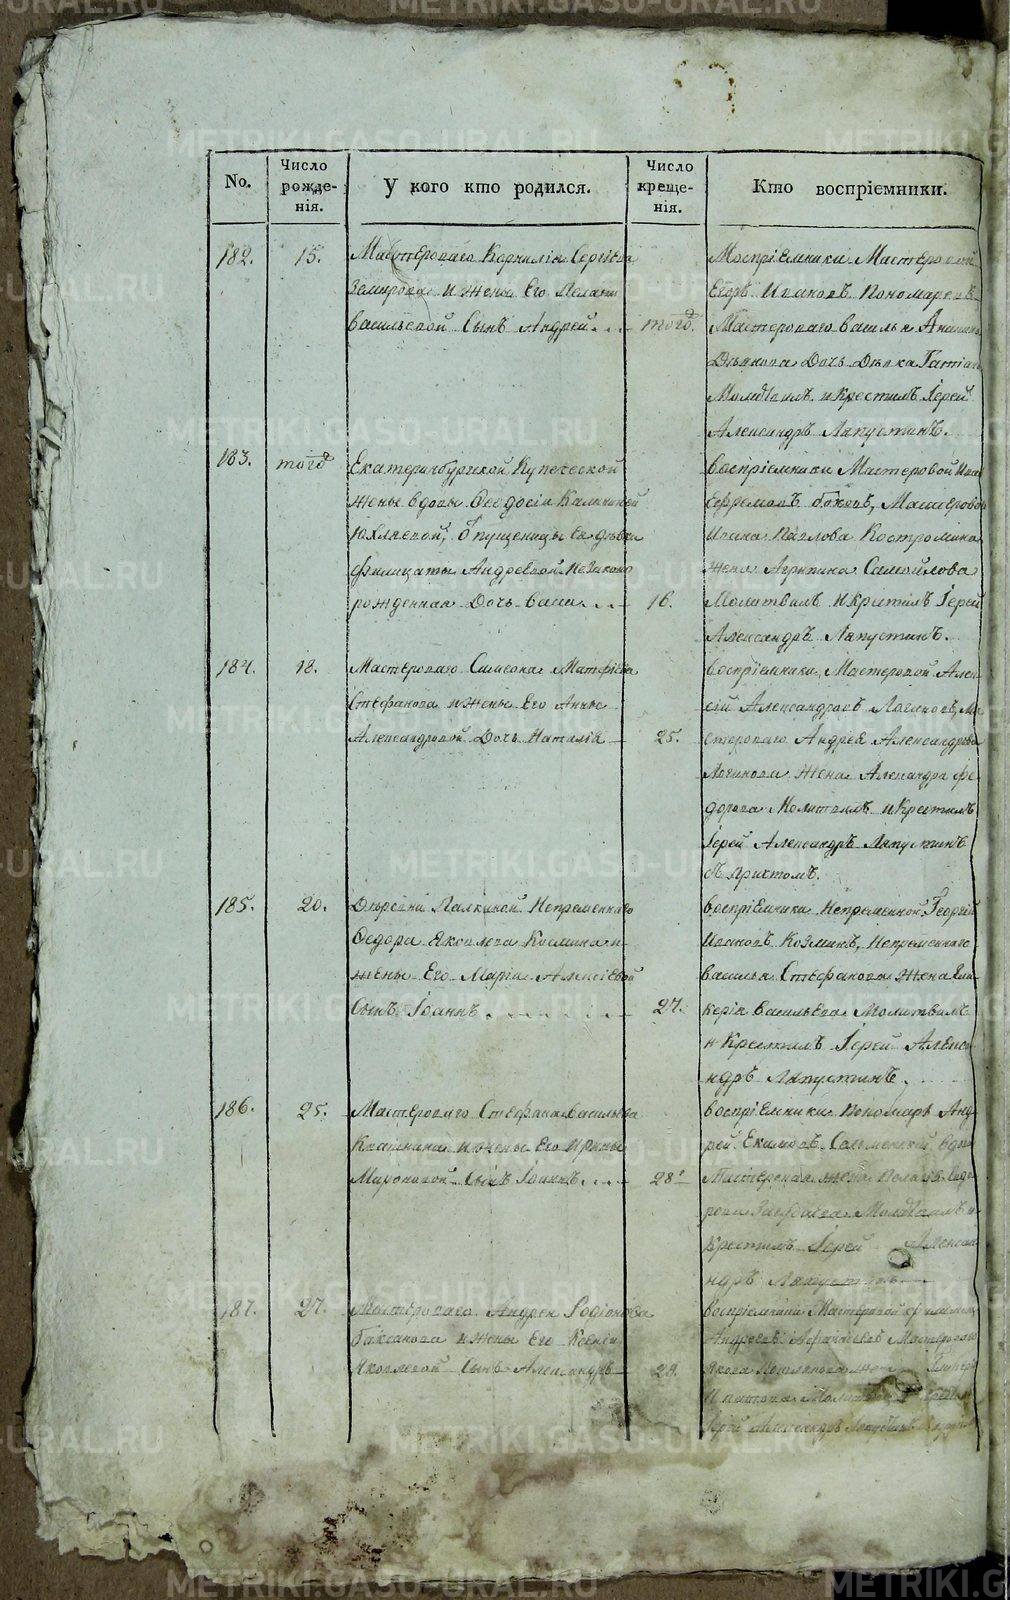 METRIKI.GASO-URAL.RU
No.
Число рожде-нія.
У кого кто родился.
Число креще-нія.
Кто воспріемники.
182.
15.
Мастероваго Корнилія Сергіева
и жены Его Пелагіи
Васильевой Сынъ Андрей
того
Воспріемники Мастеровой
Егоръ Ивановъ Пономаревъ
Мастероваго Василья
Дочь Дѣвка Татіана
Молитвилъ и Крестилъ Іерей
Александръ Ляпустинъ.
183.
того
Екатеринбургской Купеческой
жены вдовы Ѳеодосіи Калининой
отпущеницы Ея дѣвки
Филицаты Андреевой незаконо
рожденная Дочь
16.
воспріемники Мастеровой
Ефремовъ Мастероваго
Ивана Павлова Костромина
жена Агрипина Самойлова
Молитвилъ и Крестилъ Іерей
Александръ Ляпустинъ.
184.
18.
Мастероваго Симеона Матфіева
Стефанова и жены Его Анны
Александровой Дочь Наталія
25.
воспріемники Мастеровой Алек-
сій Александровъ Логиновъ, Ма-
стероваго Андрея Александрова
Логинова жена Александра Фе-
дорова Молитвилъ и Крестилъ
Іерей Александръ Ляпустинъ
съ Причтомъ.
185.
20.
Деревни Палкиной Непременнаго
Ѳедора Яковлева Козмина и
жены Его Марѳы Алексіевой
Сынъ Іоаннъ
27.
воспріемники Непременной Георгій
Ивановъ Козминъ, Непременнаго
Василья Стефанова жена Гли-
керія Васильева Молитвилъ
и Крестилъ Іерей Алекса-
ндръ Ляпустинъ.
186.
25.
Мастероваго Стефана Васильева
и жены Его Ирины
Мироновой Сынъ Іоаннъ
28
воспріемники Пономарь Анд-
рей Екимовъ Сельменскій вдова
Мастерская жена Пелагія Сидо-
рова Молитвилъ и
Крестилъ Іерей Алекса-
ндръ Ляпустинъ
187.
27.
Мастероваго Андрея Родіонова
и жены Его Ксеніи
Яковлевой Сынъ Александръ
29.
воспріемники Мастеровой
Андреевъ Мастероваго
Якова
Іерей Александръ Ляпустинъ